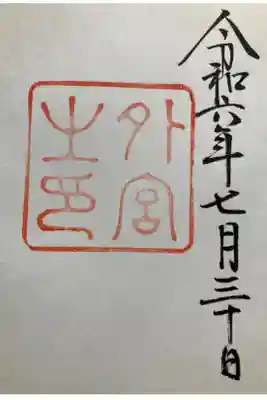 令和六年七月三十日
外宮
之印